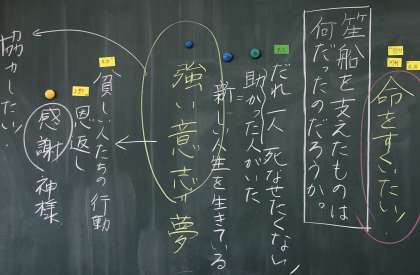 命をすくいたい!
笙船を支えたものは
何だったのだろうか。
だれ一人死なせたくない
助かった人がいた
新しい人生を生きている
強い意志=夢
貧しい人たちの行動
恩返し
感謝 神様
協力したい!